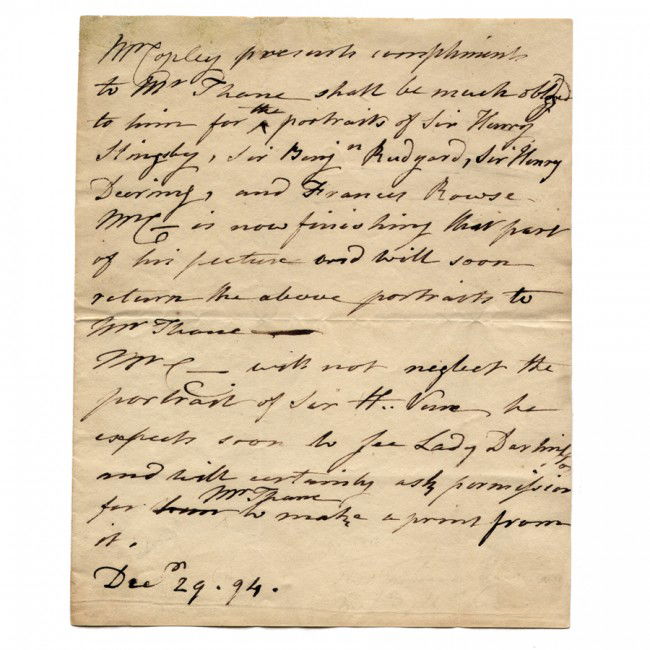 Mr Copley presents compliments
to Mr Thane shall be much obliged
to him for the portraits of Sir Henry
Slingsby, Sir Benjn Rudyard, Sir Henry
Deering, and Frances Rowse.
Mr C— is now finishing that part
of his picture and will soon
return the above portraits to
Mr Thane —
Mr C— will not neglect the
portrait of Sir H.. Vane, he
expects soon to see Lady Darling
and will certainly ask permission
for Mr. Thane to make a print from
it.
Decr 29. 94.